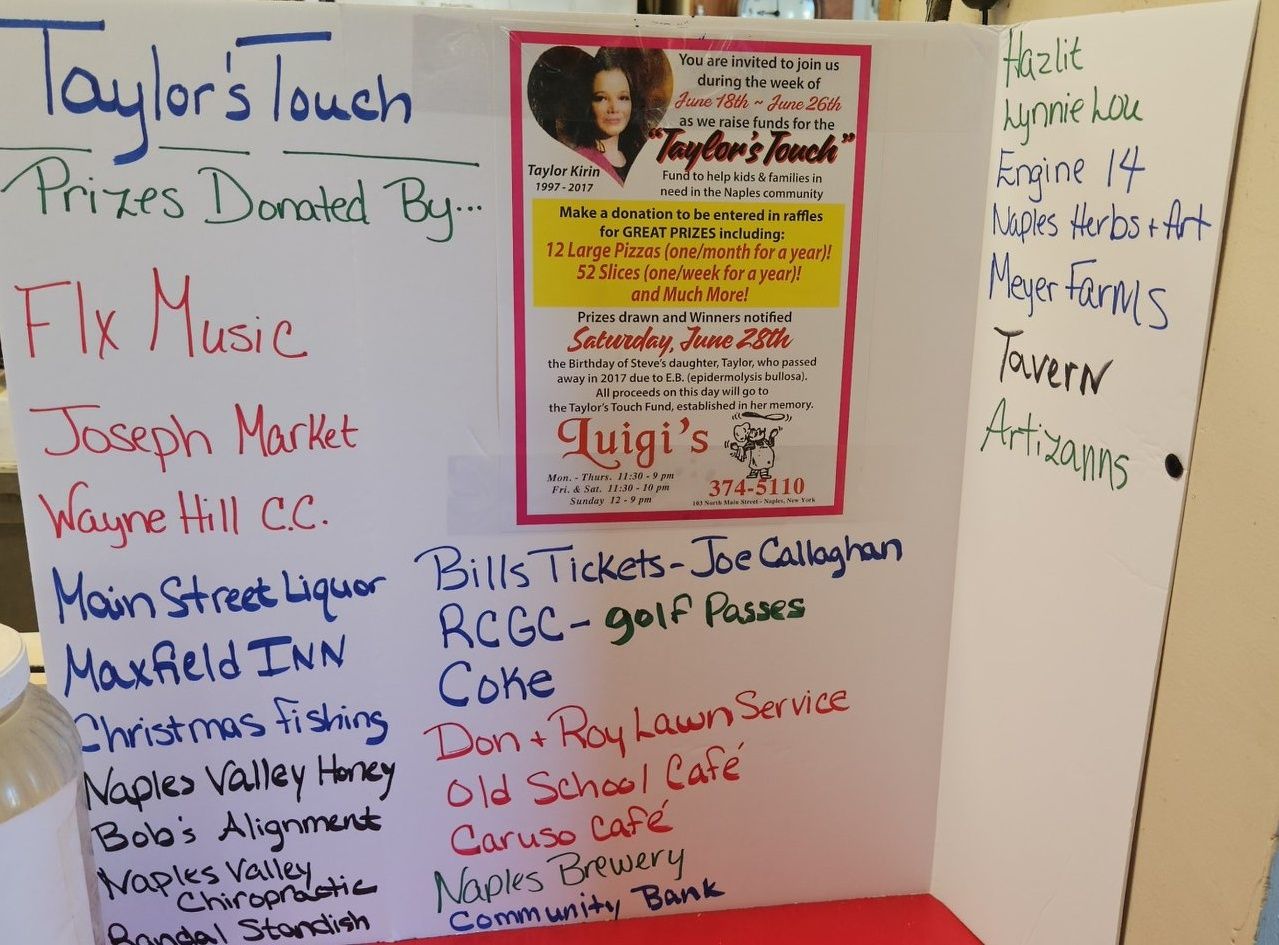 Taylor's Touch
Prizes Donated By...
Flx Music
Joseph Market
Wayne Hill C.C.
Main Street Liquor
Maxfield INN
Christmas fishing
Naples Valley Honey
Bob's Alignment
Naples Valley
Chiropractic
Randal Standish
Taylor Kirin
1997 - 2017
You are invited to join us
during the week of
June 18th ~ June 26th
as we raise funds for the
"Taylor's Touch"
Fund to help kids & families in
need in the Naples community
Make a donation to be entered in raffles
for GREAT PRIZES including:
12 Large Pizzas (one/month for a year)!
52 Slices (one/week for a year)!
and Much More!
Prizes drawn and Winners notified
Saturday, June 28th
the Birthday of Steve's daughter, Taylor, who passed
away in 2017 due to E.B. (epidermolysis bullosa).
All proceeds on this day will go to
the Taylor's Touch Fund, established in her memory.
Luigi's
Mon. - Thurs. 11:30 - 9 pm
Fri. & Sat. 11:30 - 10 pm
Sunday 12 - 9 pm
374-5110
103 North Main Street - Naples, New York
Bills Tickets - Joe Callaghan
RCGC - golf Passes
Coke
Don + Roy Lawn Service
Old School Café
Caruso Café
Naples Brewery
Community Bank
Hazlit
Lynnie Lou
Engine 14
Naples Herbs + Art
Meyer Farms
Tavern
Artizanns